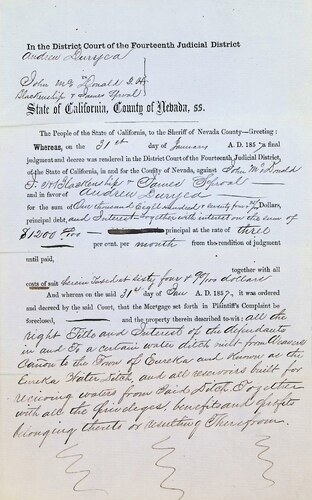 In the District Court of the Fourteenth Judicial District
Andrew Duryea
John McDonald J. H.
Blackenship & James Sproal
State of California, County of Nevada, ss.
The People of the State of California, to the Sheriff of Nevada County—Greeting:
Whereas, on the 31st day of January A. D. 1857 a final
judgment and decree was rendered in the District Court of the Fourteenth Judicial District
of the State of California, in and for the County of Nevada, against John McDonald
J. H. Blackenship & James Sproal
and in favor of Andrew Duryea
for the sum of One thousand Eight hundred & twenty four Dollars,
principal debt, and Interest Together with interest on the sum of
$1200 principal at the rate of three
per cent. per month from the rendition of judgment
until paid,
together with all
costs of suit herein Taxed at sixty four & dollars
And whereas on the said 31st day of Jan A. D. 1857, it was ordered
and decreed by the said Court, that the Mortgage set forth in Plaintiff's Complaint be
foreclosed, and the property described to wit: all the
right Title and Interest of the defendants
in and To a certain water ditch built from
Canon to the Town of Eureka and Known as the
Eureka Water Ditch, and all reservoirs built for
receiving waters from Said Ditch Together
with all the priviledges, benefits and profits
belonging thereto or resulting Therefrom.